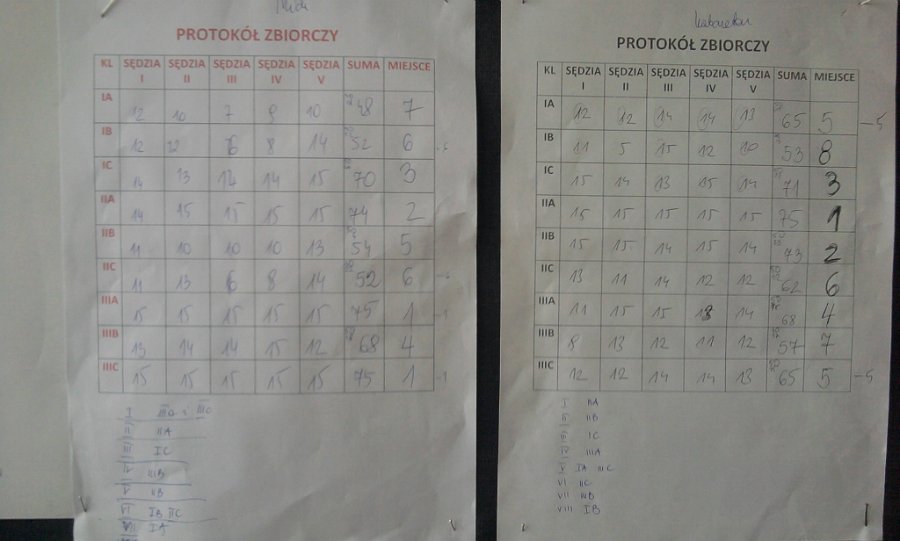 PROTOKÓŁ ZBIORCZY
KL SĘDZIA I SĘDZIA II SĘDZIA III SĘDZIA IV SĘDZIA V SUMA MIEJSCE
IA 12 10 7 9 10 48 7
IB 12 12 6 8 14 52 6
IC 14 13 14 14 15 70 3
IIA 14 15 15 15 15 74 2
IIB 11 10 10 10 13 54 5
IIC 11 13 6 8 14 52 6
IIIA 15 15 15 15 15 75 1
IIIB 13 14 14 15 12 68 4
IIIC 15 15 15 15 15 75 1
I IIIA i IIIC
II IIA
III IC
IV IIIB
V IIB
VI IB IIC
VII IA
PROTOKÓŁ ZBIORCZY
KL SĘDZIA I SĘDZIA II SĘDZIA III SĘDZIA IV SĘDZIA V SUMA MIEJSCE
IA 12 12 14 14 13 65 5 -5
IB 11 5 15 12 10 53 8
IC 15 14 13 15 14 71 3
IIA 15 15 15 15 15 75 1
IIB 15 15 14 15 14 73 2
IIC 13 11 14 12 12 62 6
IIIA 11 15 15 13 14 68 4
IIIB 8 13 12 11 12 57 7
IIIC 12 12 14 14 13 65 5 -5
I IIA
II IIB
III IC
IV IIIA
V IA IIIC
VI IIC
VII IIIB
VIII IB